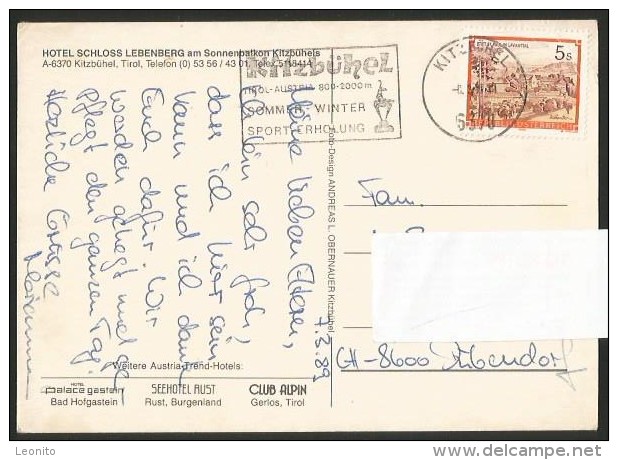 HOTEL SCHLOSS LEBENBERG am Sonnenbalkon Kitzbühels
A-6370 Kitzbühel, Tirol, Telefon (0) 53 56 / 43 01, Telex 5118414
Kitzbühel
TIROL-AUSTRIA 800-2000m
SOMMER WINTER
SPORT-ERHOLUNG
KITZBÜHEL
6370
5s
REPUBLIK ÖSTERREICH
7.3.89
Meine lieben Eltern,
Ich bin sehr froh,
dass ich hier sein
kann und ich danke
Euch dafür. Wir
werden gehegt und ge-
pflegt den ganzen Tag.
Herzliche Grüsse
Fam.
CH-8600 Dübendorf
Foto-Design ANDREAS L. OBERNAUER Kitzbühel
Weitere Austria-Trend-Hotels:
HOTEL
palace gastein
Bad Hofgastein
SEEHOTEL RUST
Rust, Burgenland
CLUB ALPIN
Gerlos, Tirol
Leonito
www.delcampe.net